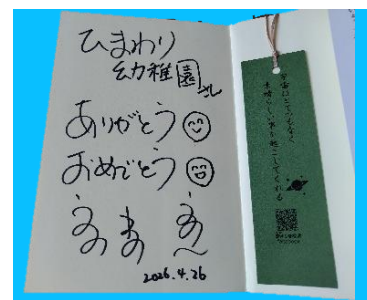 ひまわり
幼稚園さん
ありがとう
おめでとう
2026.4.26
宇宙はとてつもなく
素晴らしい事を起こしてくれる